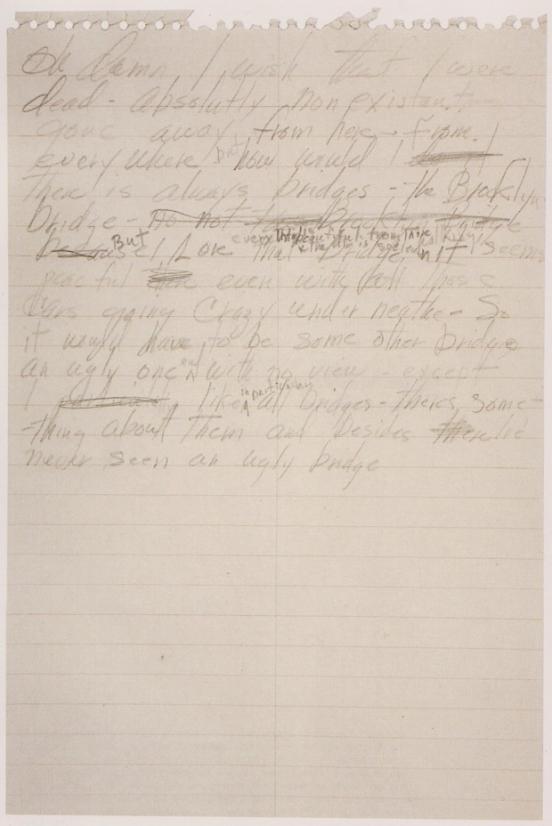 Oh damn I wish that I were
dead - absolutly nonexistant
gone away from here - from
everywhere but how would I
There is always bridges - the Brooklyn
bridge - no not the Brooklyn Bridge
because But I Love that bridge everything is beautiful from there and the air is so clean it seems
peaceful there even with all those
cars going crazy underneathe - So
it would have to be some other bridge
an ugly one and with no view - except
I particularly like in particular all bridges - there's some-
thing about them and besides there I've
never seen an ugly bridge